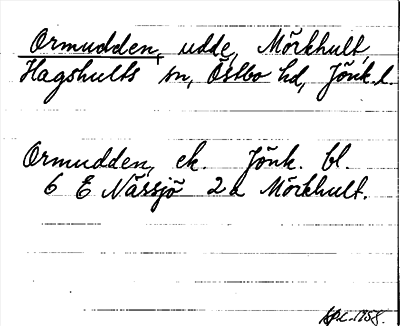 Ormudden, udde, Mörkhult,
Hagshults sn, Östbo hd, Jönk. l.
Ormudden, ek. Jönk. bl.
6 E Nässjö 2a Mörkhult.